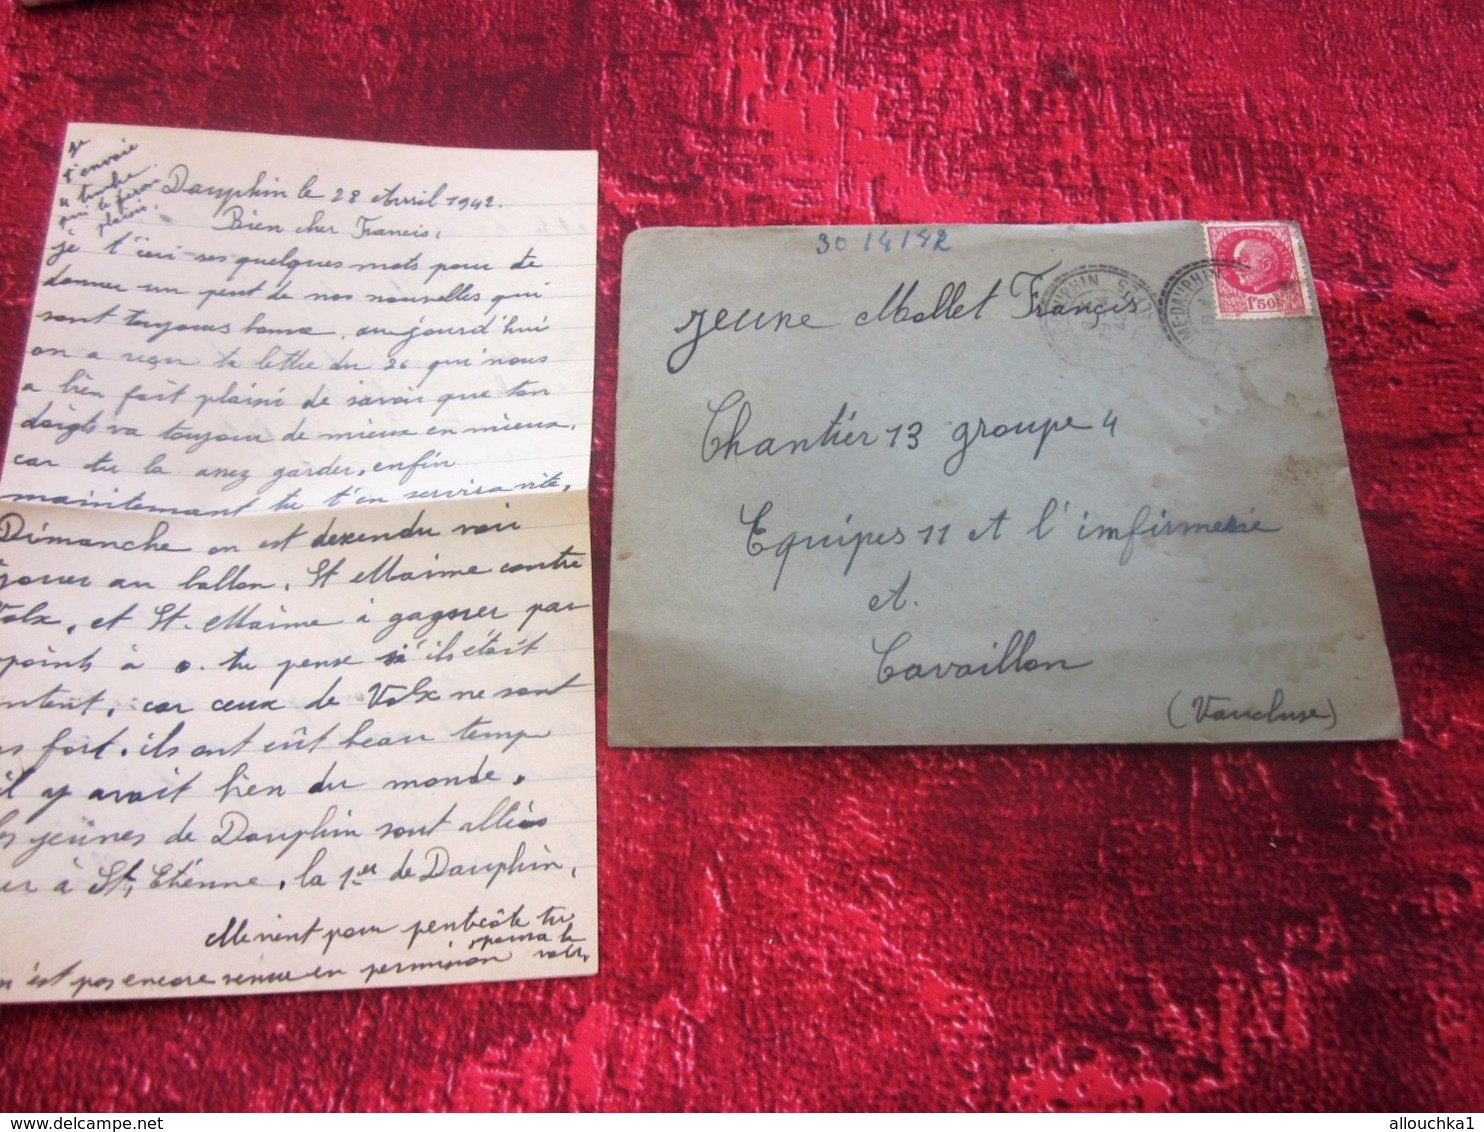 je
t'envoie
u timbre
qui te ferai
plaisir.
Dauphin le 28 Avril 1942.
Bien cher Francis,
je t'écri ses quelques mots pour te
donner un peut de nos nouvelles qui
sont toujours bonne, aujourd'hui
on a reçu ta lettre du 26 qui nous
a bien fait plaisi de savoir que ton
doigts va toujour de mieux en mieux,
car tu la assez garder, enfin
maintemant tu t'en servira vite,
Dimanche on est dexendu voir
jouer au ballon, St Maime contre
Volx, et St. Maime à gagner par
points à 0. tu pense si ils était
ntent, car ceux de Volx ne sont
s fort. ils ont eût beau temp
il y avait bien du monde,
es jeunes de Dauphin sont alliés
er à St, Etienne, la 1er de Dauphin,
Me vient pour pentecôte tu
pourra la
n'est pas encore venue en permision voir,
30/4/42
jeune Mollet Francis
Chantier 13 groupe 4
Equipes 11 et l'infirmerie
et.
Cavaillon
(Vaucluse)
DAUPHIN
1F50
NE-DAUPHIN
allouchka1
www.delcampe.net